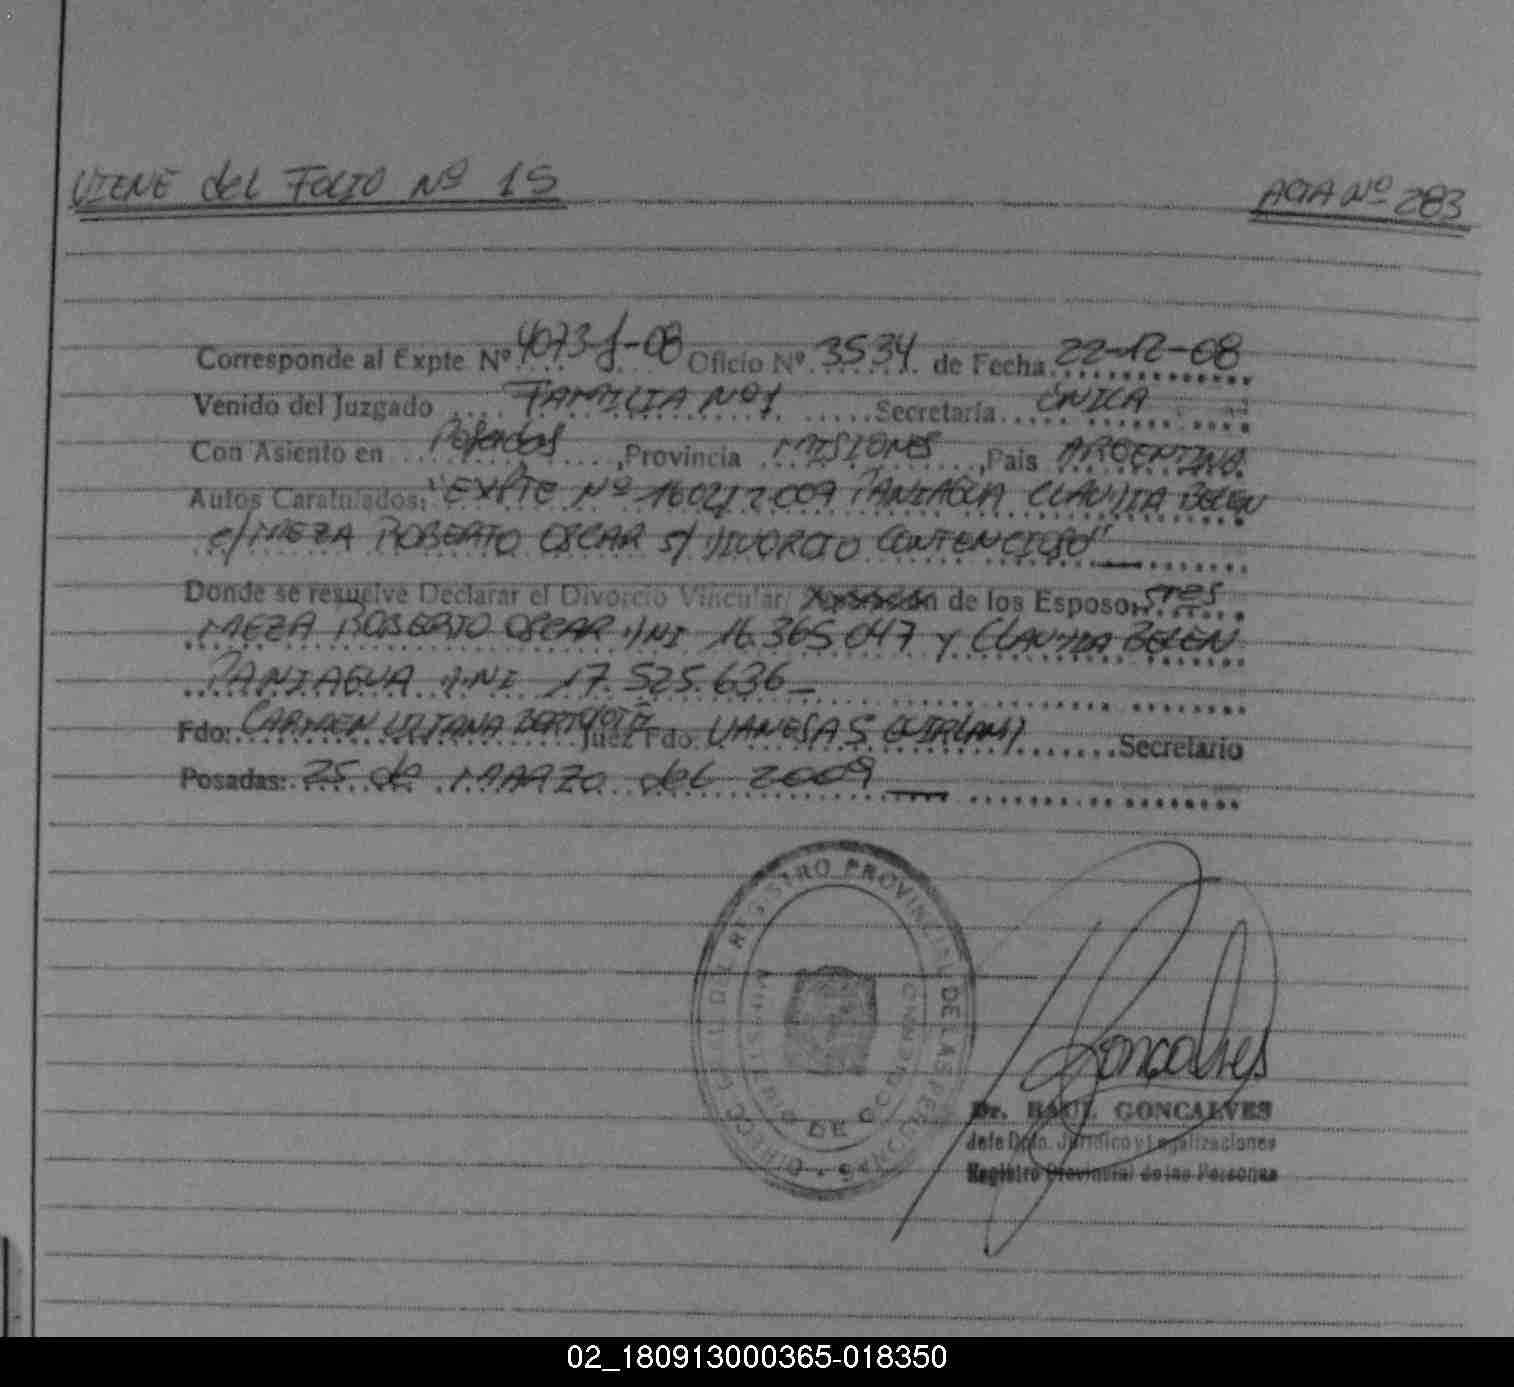 VIENE del FOLIO Nº 15
ACTA Nº 283
Corresponde al Expte Nº 4073-J-08 Oficio Nº 3534 de Fecha 22-12-08
Venido del Juzgado FAMILIA Nº 1 Secretaría ÚNICA
Con Asiento en Posadas, Provincia MISIONES, País ARGENTINA
Autos Caratulados: "EXPTE Nº PANIAGUA CLAUDIA BELEN
c/ MEZA ROBERTO OSCAR s/ DIVORCIO CONTENCIOSO"
Donde se resuelve Declarar el Divorcio Vincular/ de los Esposos: sres
MEZA ROBERTO OSCAR DNI 16.365.047 y CLAUDIA BELEN
PANIAGUA DNI 17.525.636
Fdo: CARMEN LILIANA Juez Fdo. VANESA S Secretario
Posadas: 25 de MARZO del 2009
DIRECC GRAL DEL REGISTRO PROVINCIAL DE LAS PERSONAS
Goncalves
Dr. RAUL GONCALVES
Jefe Dpto. Jurídico y Legalizaciones
Registro Provincial de las Personas
02_180913000365-018350